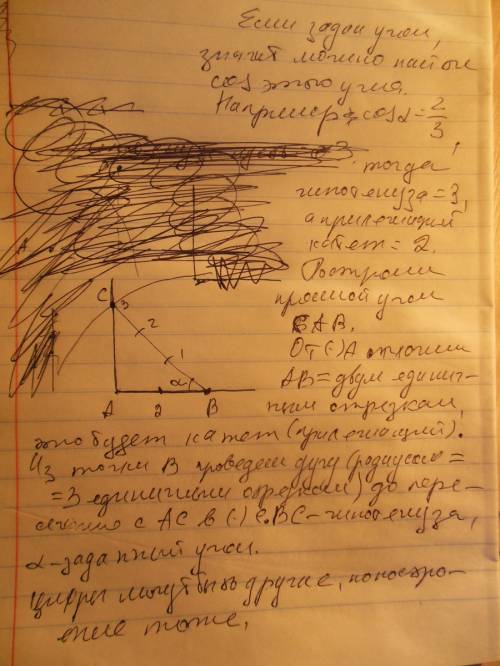 Если задан угол,
значит можно найти
cos этого угла.
Например, cos α = 2/3,
тогда
гипотенуза = 3,
а прилежащий
катет = 2.
Построим
прямой угол
CAB.
От (·) A отложим
AB = двум единич-
ным отрезкам,
это будет катет (прилежащий).
Из точки B проведем дугу (радиусом =
= 3 единичным отрезкам) до пере-
сечения с AC в (·) C. BC - гипотенуза,
α - заданный угол.
Цифры могут быть другие, но постро-
ение тоже,
C 3
2
1
α
A 2 B